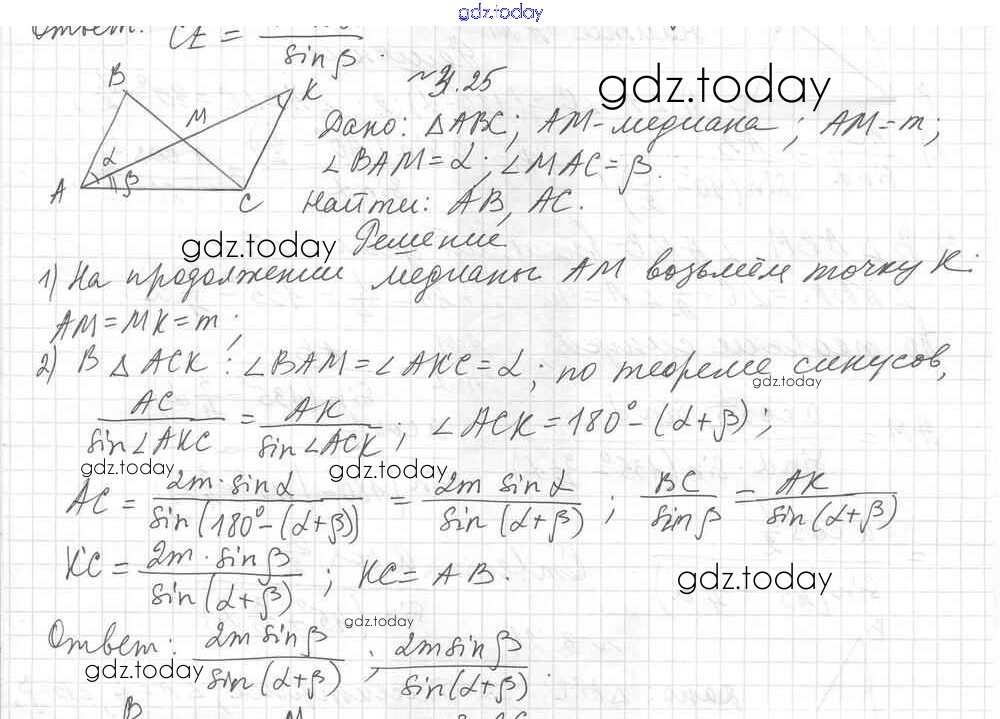 gdz.today
Ответ: CE = / sin β .
№ 3.25
gdz.today
B K M A C α β
Дано: △ABC; AM-медиана; AM=m;
∠BAM=α; ∠MAC=β.
Найти: AB, AC.
gdz.today Решение
1) На продолжении медианы AM возьмём точку K:
AM=MK=m;
2) В △ ACK: ∠BAM=∠AKC=α; по теореме синусов,
gdz.today
AC / sin∠AKC = AK / sin∠ACK ; ∠ACK=180°-(α+β);
gdz.today gdz.today
AC = 2m·sinα / sin(180°-(α+β)) = 2m sinα / sin(α+β) ; BC / sinβ = AK / sin(α+β)
KC = 2m·sinβ / sin(α+β) ; KC=AB.
gdz.today
gdz.today
Ответ: 2m sinβ / sin(α+β) ; 2m sinβ / sin(α+β) .
gdz.today
B M